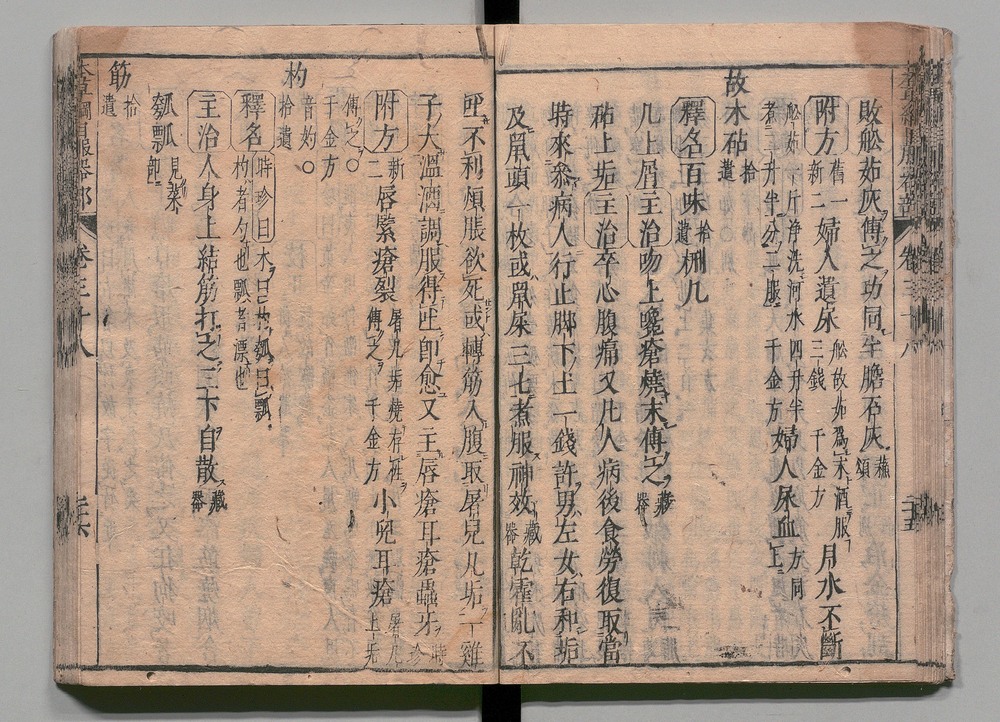 敗舩茹灰傅之功同牛膽石灰 蘇頌
附方 舊一新二 婦人遺尿 舩故茹爲末酒服三錢 千金方 月水不斷
舩茹一斤浄洗河水四升半煮二升半分二服 千金方 婦人尿血 方同上
故木砧 拾遺
釋名 百味 拾遺 櫍几
几上屑 主治 吻上瘡燒末傅之 藏器
砧上垢 主治 卒心腹痛又凡人病後食勞復取當
時來參病人行止脚下土一錢許男左女右和垢
及鼠頭一枚或鼠屎三七煮服神效 藏器 乾霍亂不
吐不利煩脹欲死或轉筋入腹取屠兒几垢一雞
子大溫酒調服得吐即愈又主唇瘡耳瘡蟲牙 時珍
附方 新二 唇緊瘡裂 屠几垢燒存性傅之 千金方 小兒耳瘡 屠几上垢
傅之○千金方
杓 音妁○拾遺
釋名 時珍曰木曰杓瓠曰瓢杓者勺也瓢者漂也
主治 人身上結筋打之三下自散 藏器
瓠瓢 見菜部
筯 拾遺
本草綱目服器部 卷三十八 三十六
卷三十八 三十五